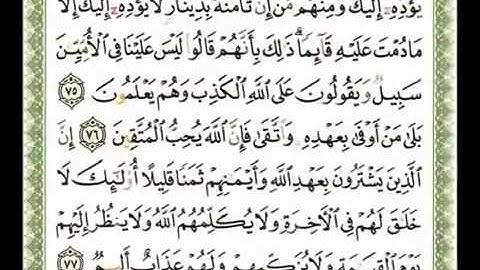 يُؤَدِّهِۦٓ إِلَيْكَ وَمِنْهُم مَّنْ إِن تَأْمَنْهُ بِدِينَارٍ لَّا يُؤَدِّهِۦٓ إِلَيْكَ إِلَّا
مَادُمْتَ عَلَيْهِ قَآئِمًا ۗ ذَٰلِكَ بِأَنَّهُمْ قَالُوا۟ لَيْسَ عَلَيْنَا فِى ٱلْأُمِّيِّـۧنَ
سَبِيلٌ وَيَقُولُونَ عَلَى ٱللَّهِ ٱلْكَذِبَ وَهُمْ يَعْلَمُونَ ٧٥
بَلَىٰ مَنْ أَوْفَىٰ بِعَهْدِهِۦ وَٱتَّقَىٰ فَإِنَّ ٱللَّهَ يُحِبُّ ٱلْمُتَّقِينَ ٧٦ إِنَّ
ٱلَّذِينَ يَشْتَرُونَ بِعَهْدِ ٱللَّهِ وَأَيْمَـٰنِهِمْ ثَمَنًا قَلِيلًا أُو۟لَـٰٓئِكَ لَا
خَلَـٰقَ لَهُمْ فِى ٱلْـَٔاخِرَةِ وَلَا يُكَلِّمُهُمُ ٱللَّهُ وَلَا يَنظُرُ إِلَيْهِمْ
يَوْمَ ٱلْقِيَـٰمَةِ وَلَا يُزَكِّيهِمْ وَلَهُمْ عَذَابٌ أَلِيمٌ ٧٧